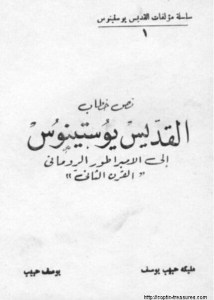 سلسلة مؤلفات القديس يوستينوس
١
نص خطاب
القديس يوستينوس
إلى الامبراطور الرومانى
"القرن الثانى"
مليكه حبيب يوسف
يوسف حبيب
http://coptic-treasures.com